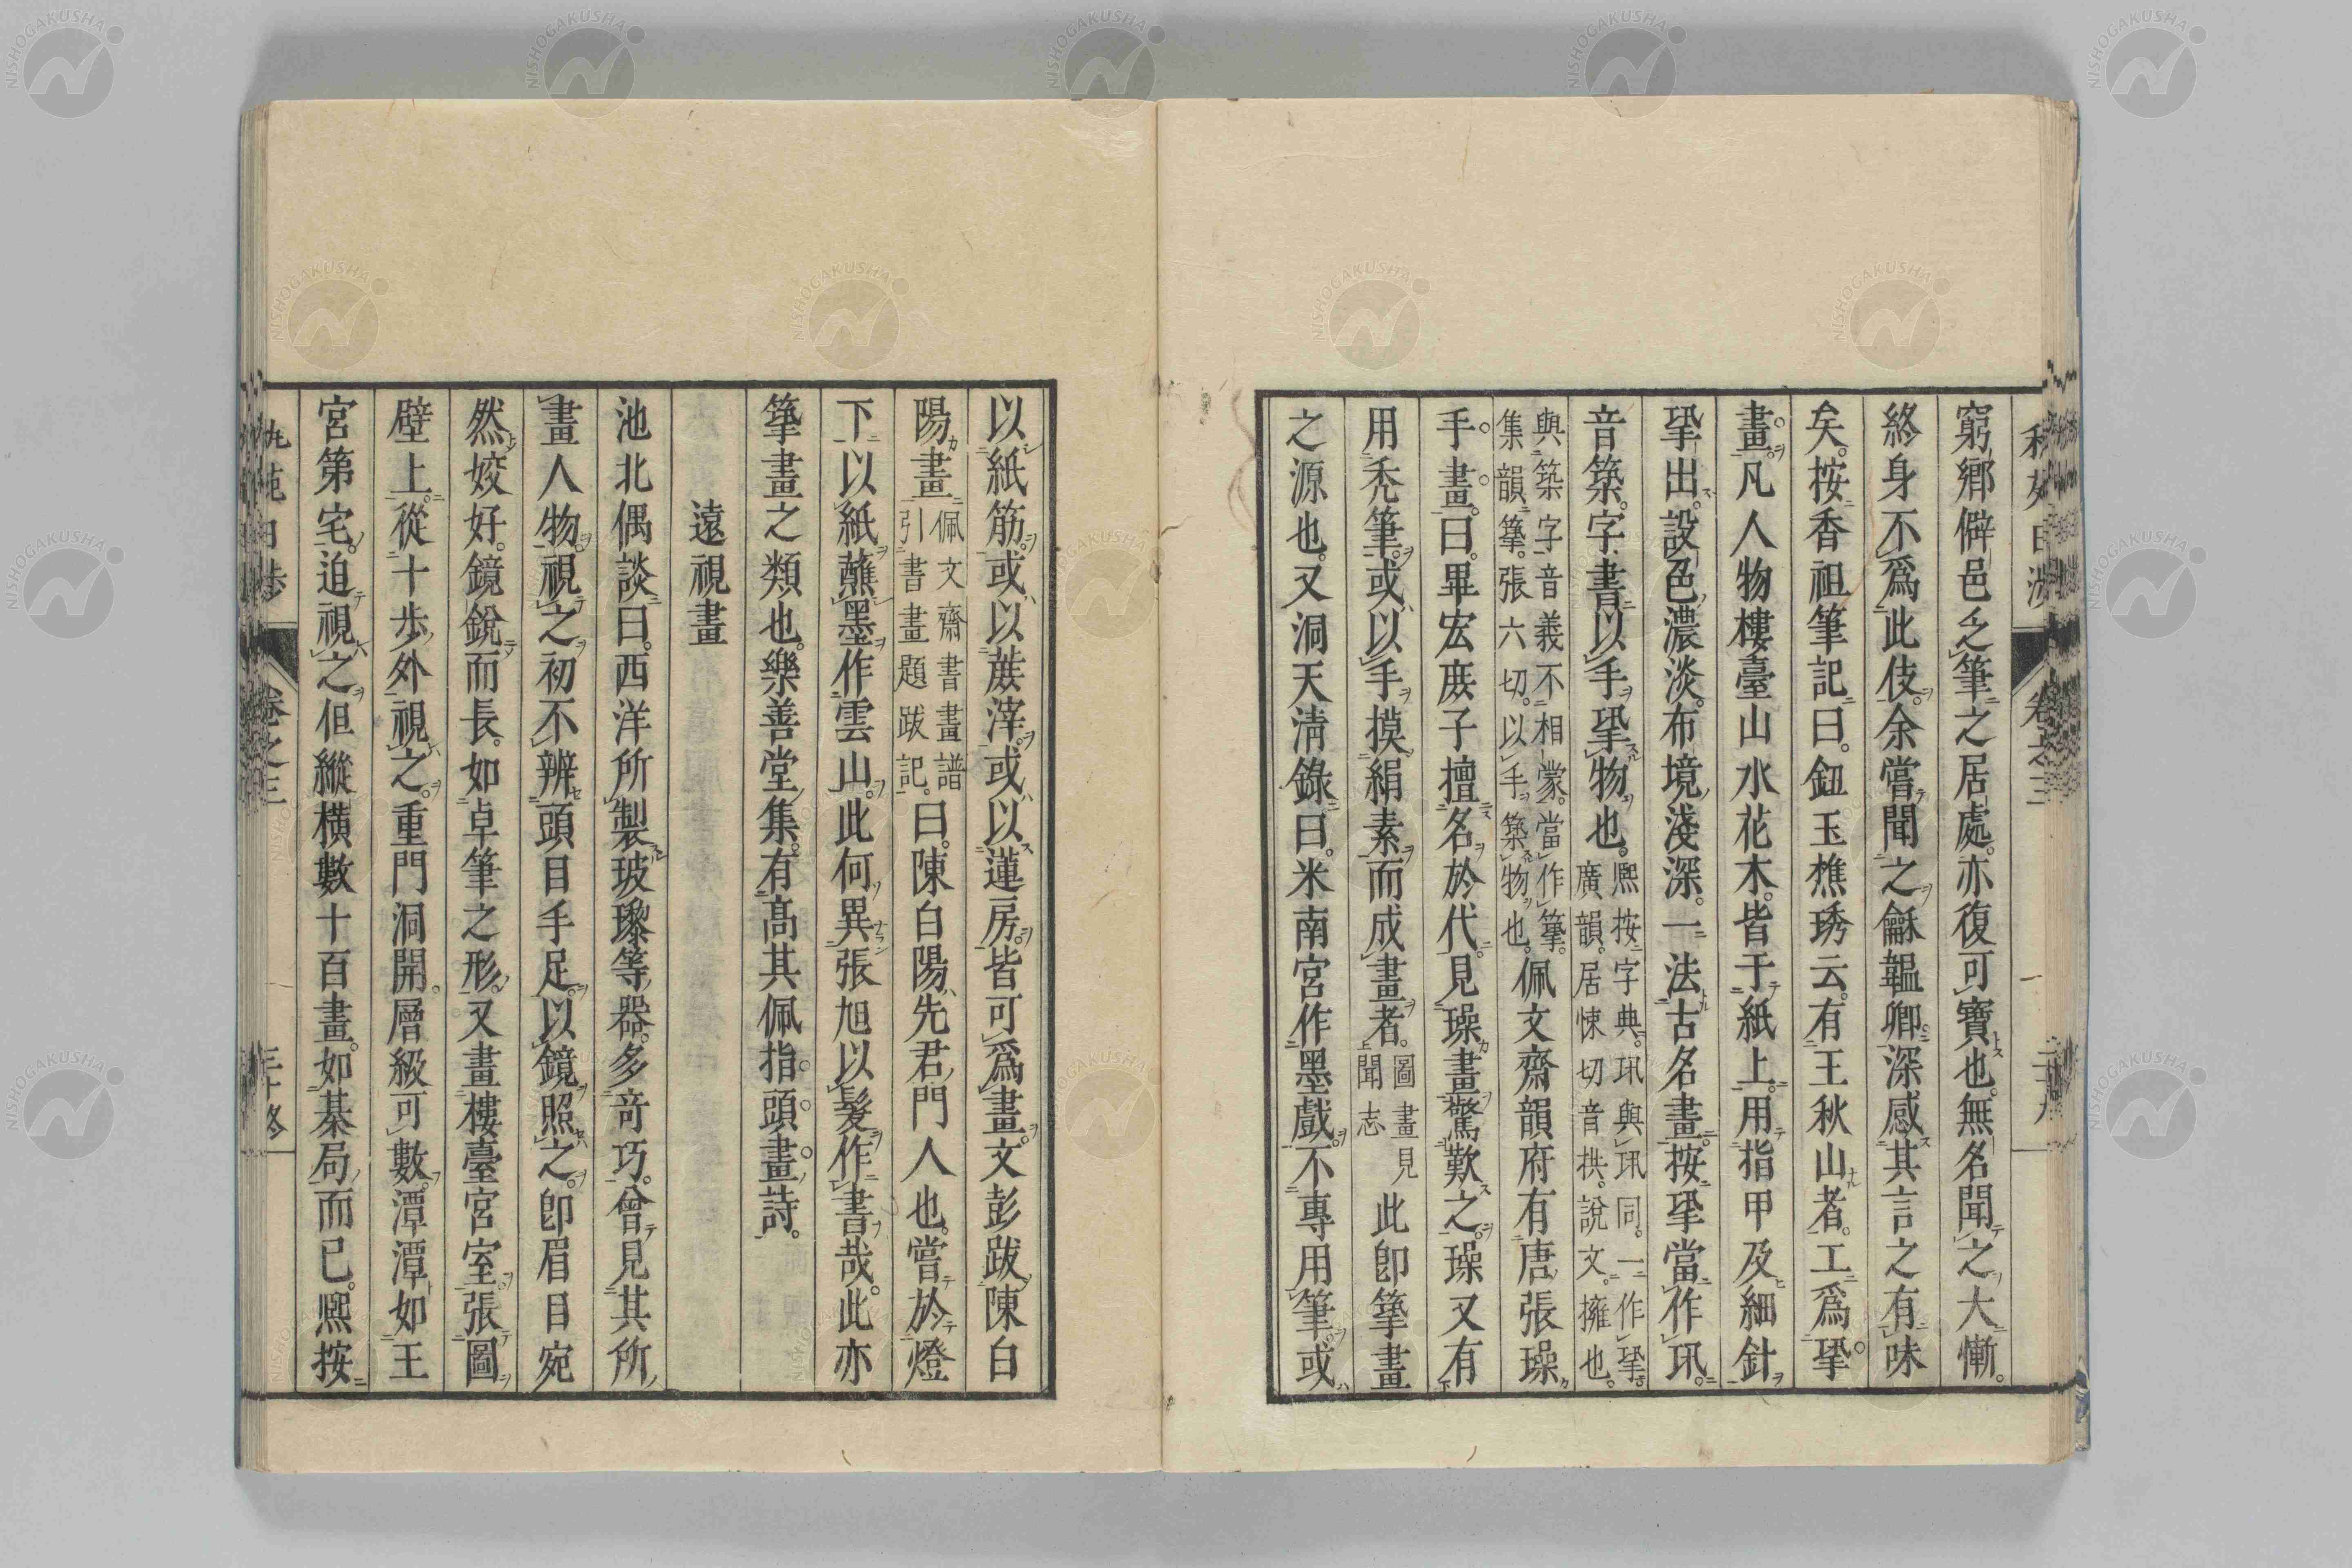 窮鄉僻邑乏筆之居處。亦復可寶也。無名聞之大慚。
終身不爲此伎。余嘗聞之龢韞卿。深感其言之有味
矣。按香祖筆記曰。鈕玉樵琇云。有王秋山者。工爲㧬
畫。凡人物樓臺山水花木。皆于紙上。用指甲及細針
㧬出。設色濃淡。布境淺深。一法古名畫。按㧬當作巩。
音築。字書以手㧬物也。
熈按字典。巩與巩同。一作㧬。
廣韻。居悚切音拱。說文。擁也。
佩文齋韻府有唐張璪
與築字音義不相蒙。當作𢱢。
集韻𢱢。張六切。以手築物也。
手畫。曰。畢宏庶子擅名於代。見璪畫驚歎之。璪又有
用禿筆。或以手摸絹素而成畫者。
圖畫見
聞志
此卽𢱢畫
之源也。又洞天淸錄曰。米南宮作墨戲。不專用筆。或
以紙筋。或以蔗滓。或以蓮房。皆可爲畫。文彭跋陳白
陽畫
佩文齋書畫譜
引書畫題跋記。
曰。陳白陽先君門人也。嘗於燈
下以紙蘸墨作雲山。此何異張旭以髮作書哉。此亦
𢱢畫之類也。樂善堂集。有高其佩指頭畫詩。
遠視畫
池北偶談曰。西洋所製玻瓈等器。多奇巧。曾見其所
畫人物。視之初不辨頭目手足。以鏡照之。卽眉目宛
然姣好。鏡銳而長。如卓筆之形。又畫樓臺宮室。張圖
壁上。從十步外視之。重門洞開。層級可數。潭潭如王
宮第宅。迫視之但縱橫數十百畫。如棊局而已。熈按
卷之三